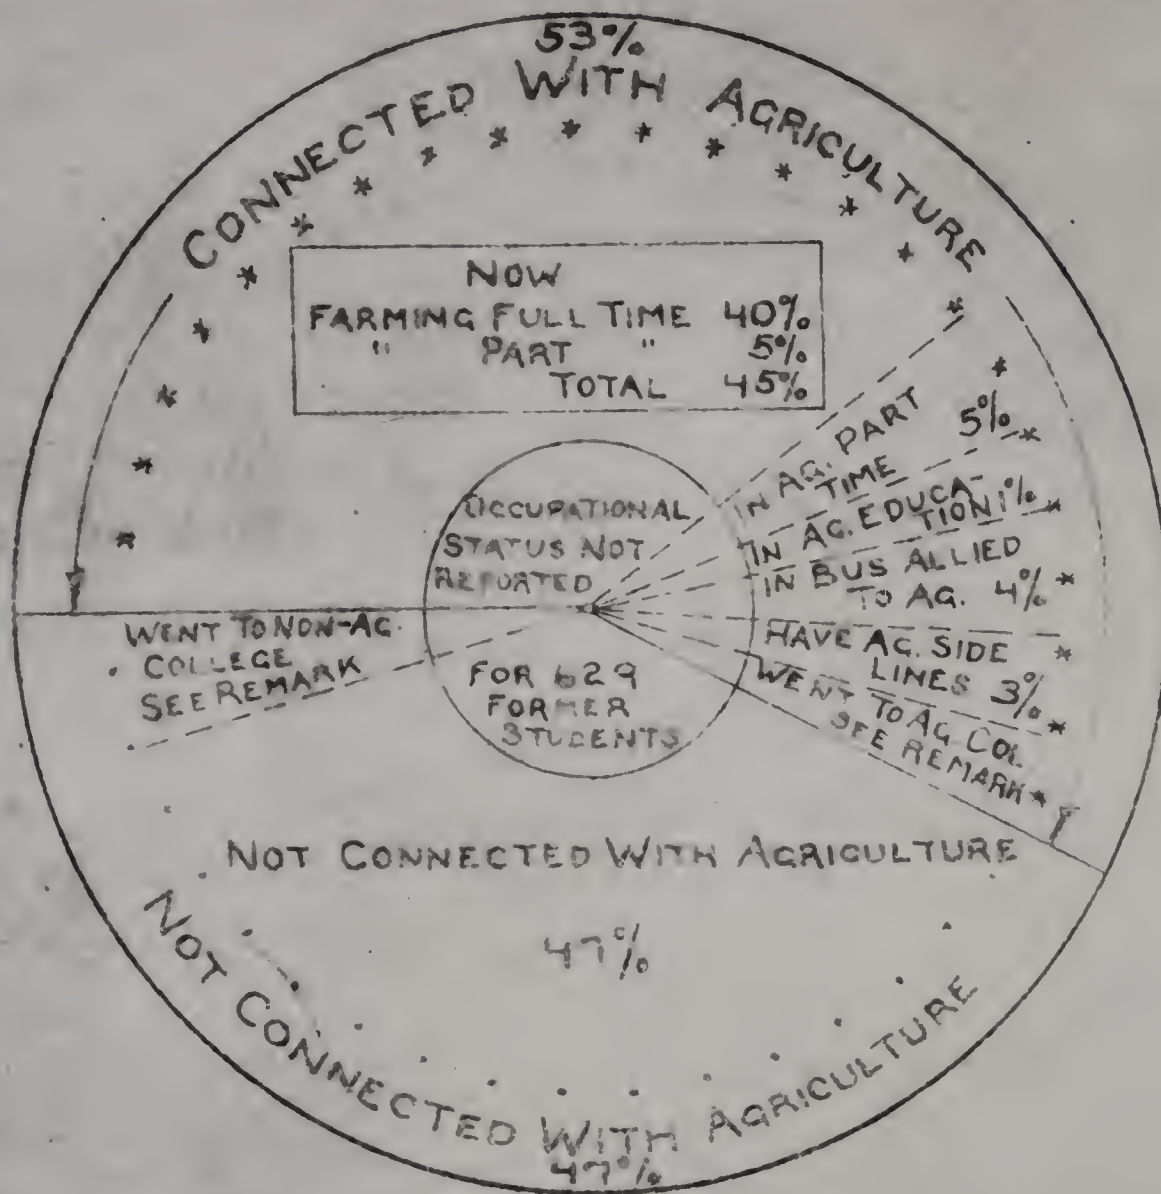 53%
CONNECTED WITH AGRICULTURE
NOW
FARMING FULL TIME 40%
" PART " 5%
TOTAL 45%
IN AG. PART
TIME 5%
IN AG. EDUCA-
TION 1%
IN BUS ALLIED
TO AG. 4%
HAVE AG. SIDE
LINES 3%
WENT TO AG. COL.
SEE REMARK
OCCUPATIONAL
STATUS NOT
REPORTED
FOR 629
FORMER
STUDENTS
WENT TO NON-AG.
COLLEGE
SEE REMARK
NOT CONNECTED WITH AGRICULTURE
47%
NOT CONNECTED WITH AGRICULTURE
47%